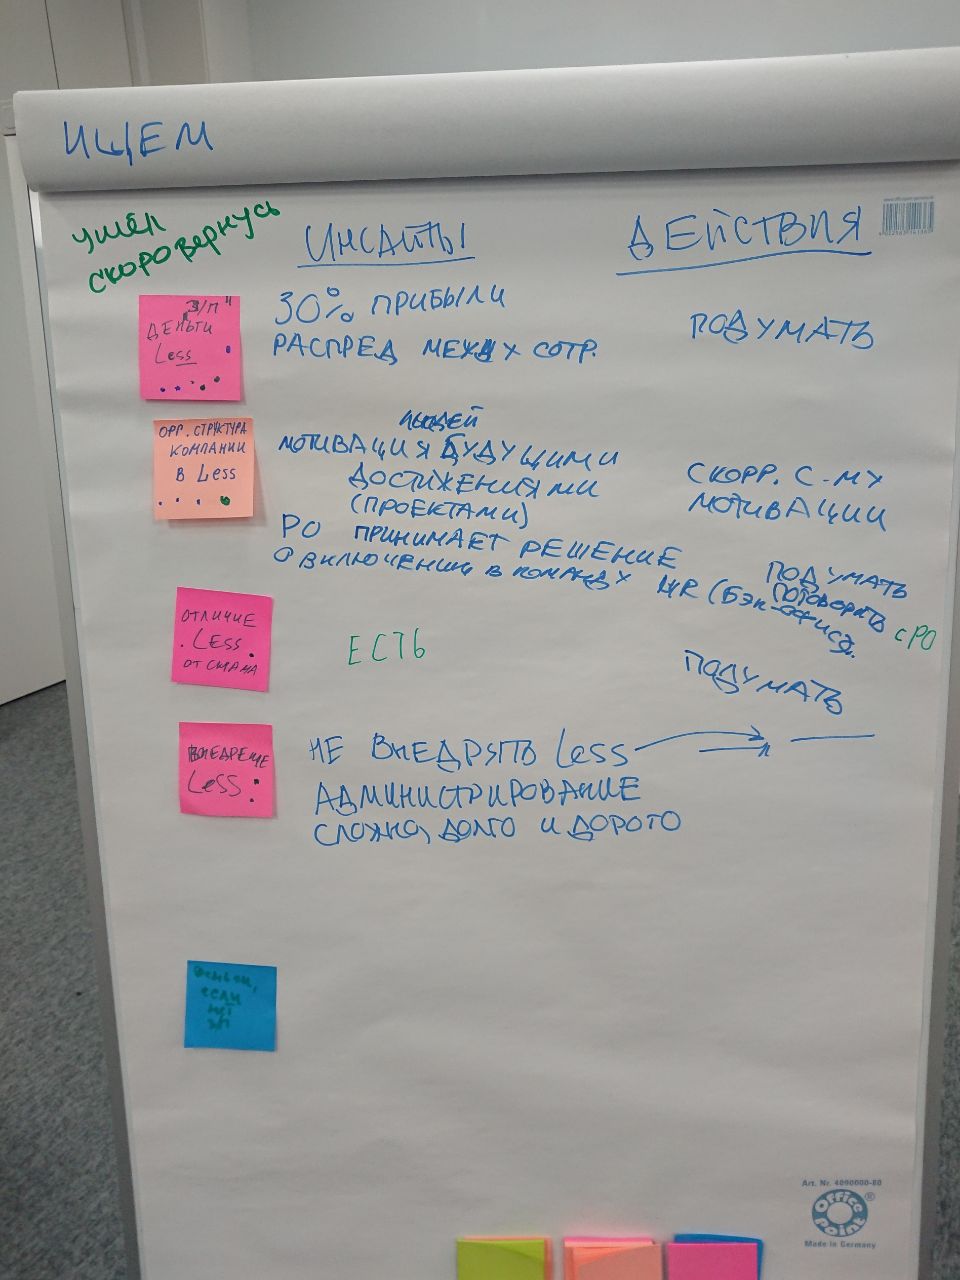 ИЩЕМ
УШЁЛ
СКОРО ВЕРНУСЬ
ИНСАЙТЫ
ДЕЙСТВИЯ
"З/П"
ДЕНЬГИ
Less
30% ПРИБЫЛИ
РАСПРЕД МЕЖДУ СОТР.
ПОДУМАТЬ
ОРГ. СТРУКТУРА
КОМПАНИИ
В Less
ЛЮДЕЙ
МОТИВАЦИЯ БУДУЩИМИ
ДОСТИЖЕНИЯМИ
(ПРОЕКТАМИ)
СКОРР. С-МУ
МОТИВАЦИИ
PO ПРИНИМАЕТ РЕШЕНИЕ
О ВКЛЮЧЕНИИ В КОМАНДУ HR (БЭК-ОФИСА)
ПОДУМАТЬ
ПОГОВОРИТЬ с PO
ОТЛИЧИЕ
LESS
ОТ СКРАМА
ЕСТЬ
ПОДУМАТЬ
ВНЕДРЕНИЕ
LeSS
НЕ ВНЕДРЯТЬ Less
АДМИНИСТРИРОВАНИЕ
СЛОЖНО, ДОЛГО И ДОРОГО
ЕСЛИ
НЕТ
ЗП
www.officepoint-germany.de
Art. Nr. 4090000-80
Office Point
®
Made in Germany